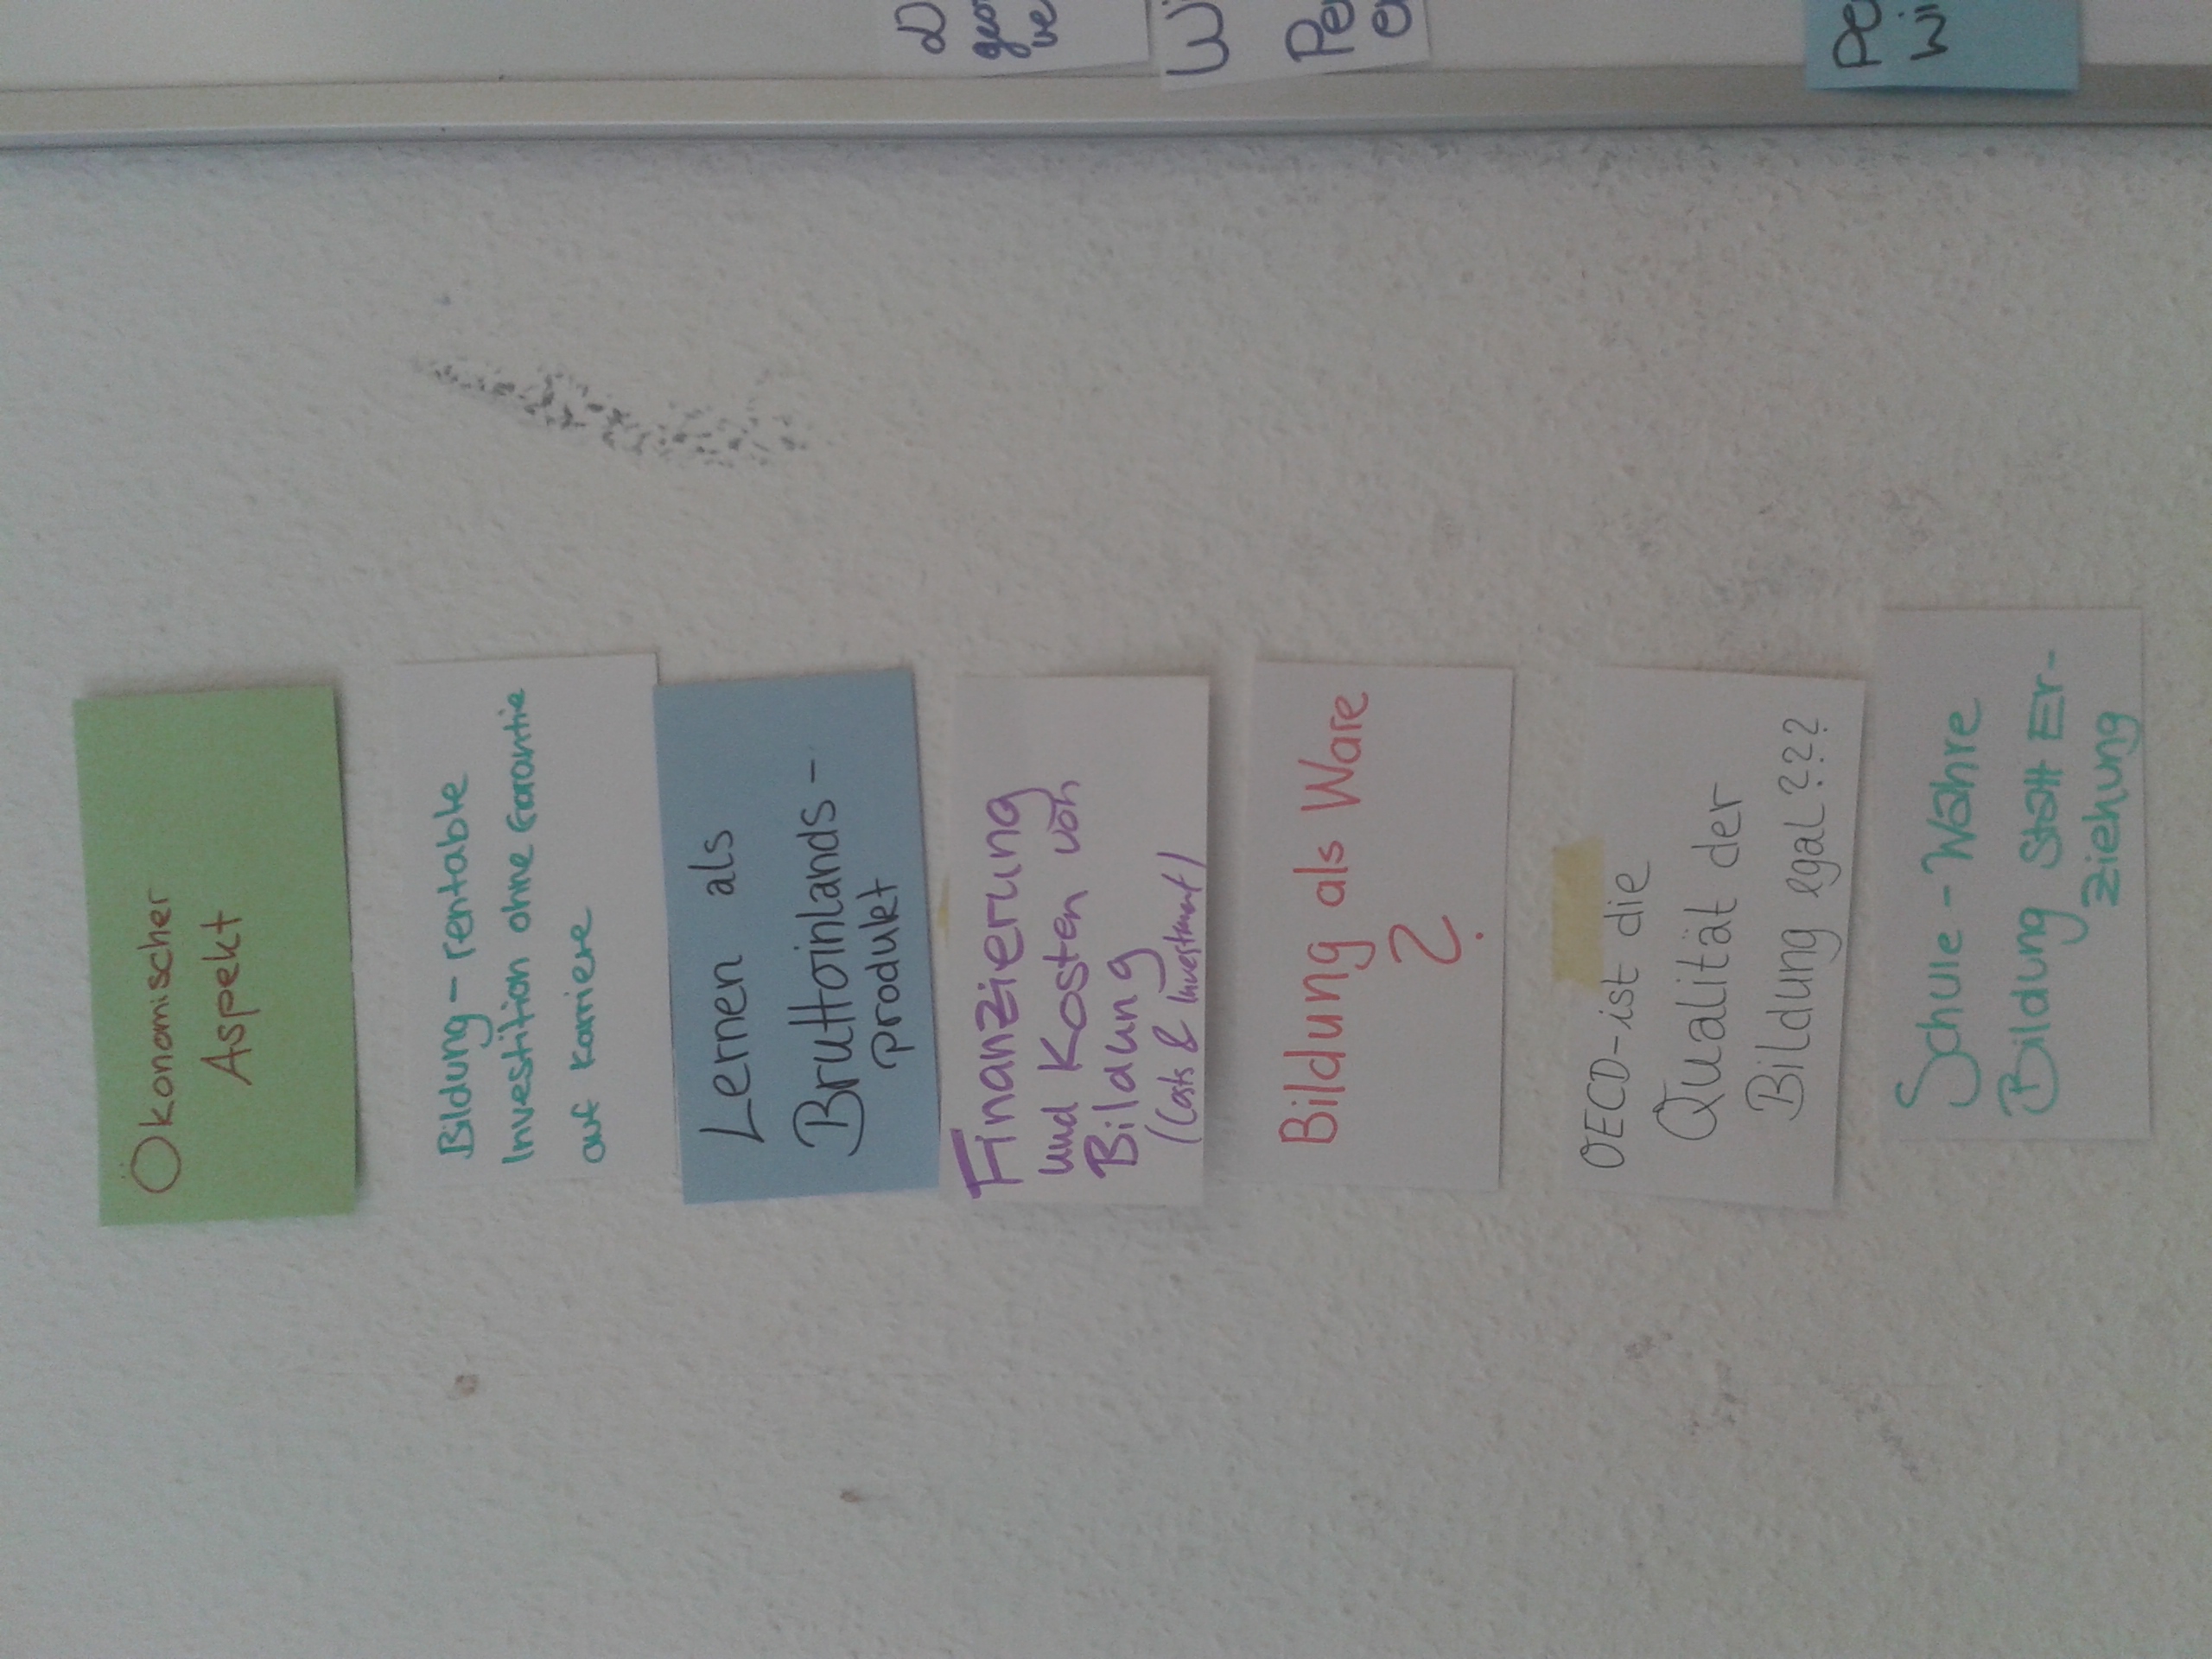 Ökonomischer
Aspekt
Bildung - rentable
Investition ohne Garantie
auf Karriere
Lernen als
Bruttoinlands-
produkt
Finanzierung
und Kosten von
Bildung
(Costs & Investment)
Bildung als Ware
?
OECD-ist die
Qualität der
Bildung egal???
Schule - Wahre
Bildung statt Er-
ziehung